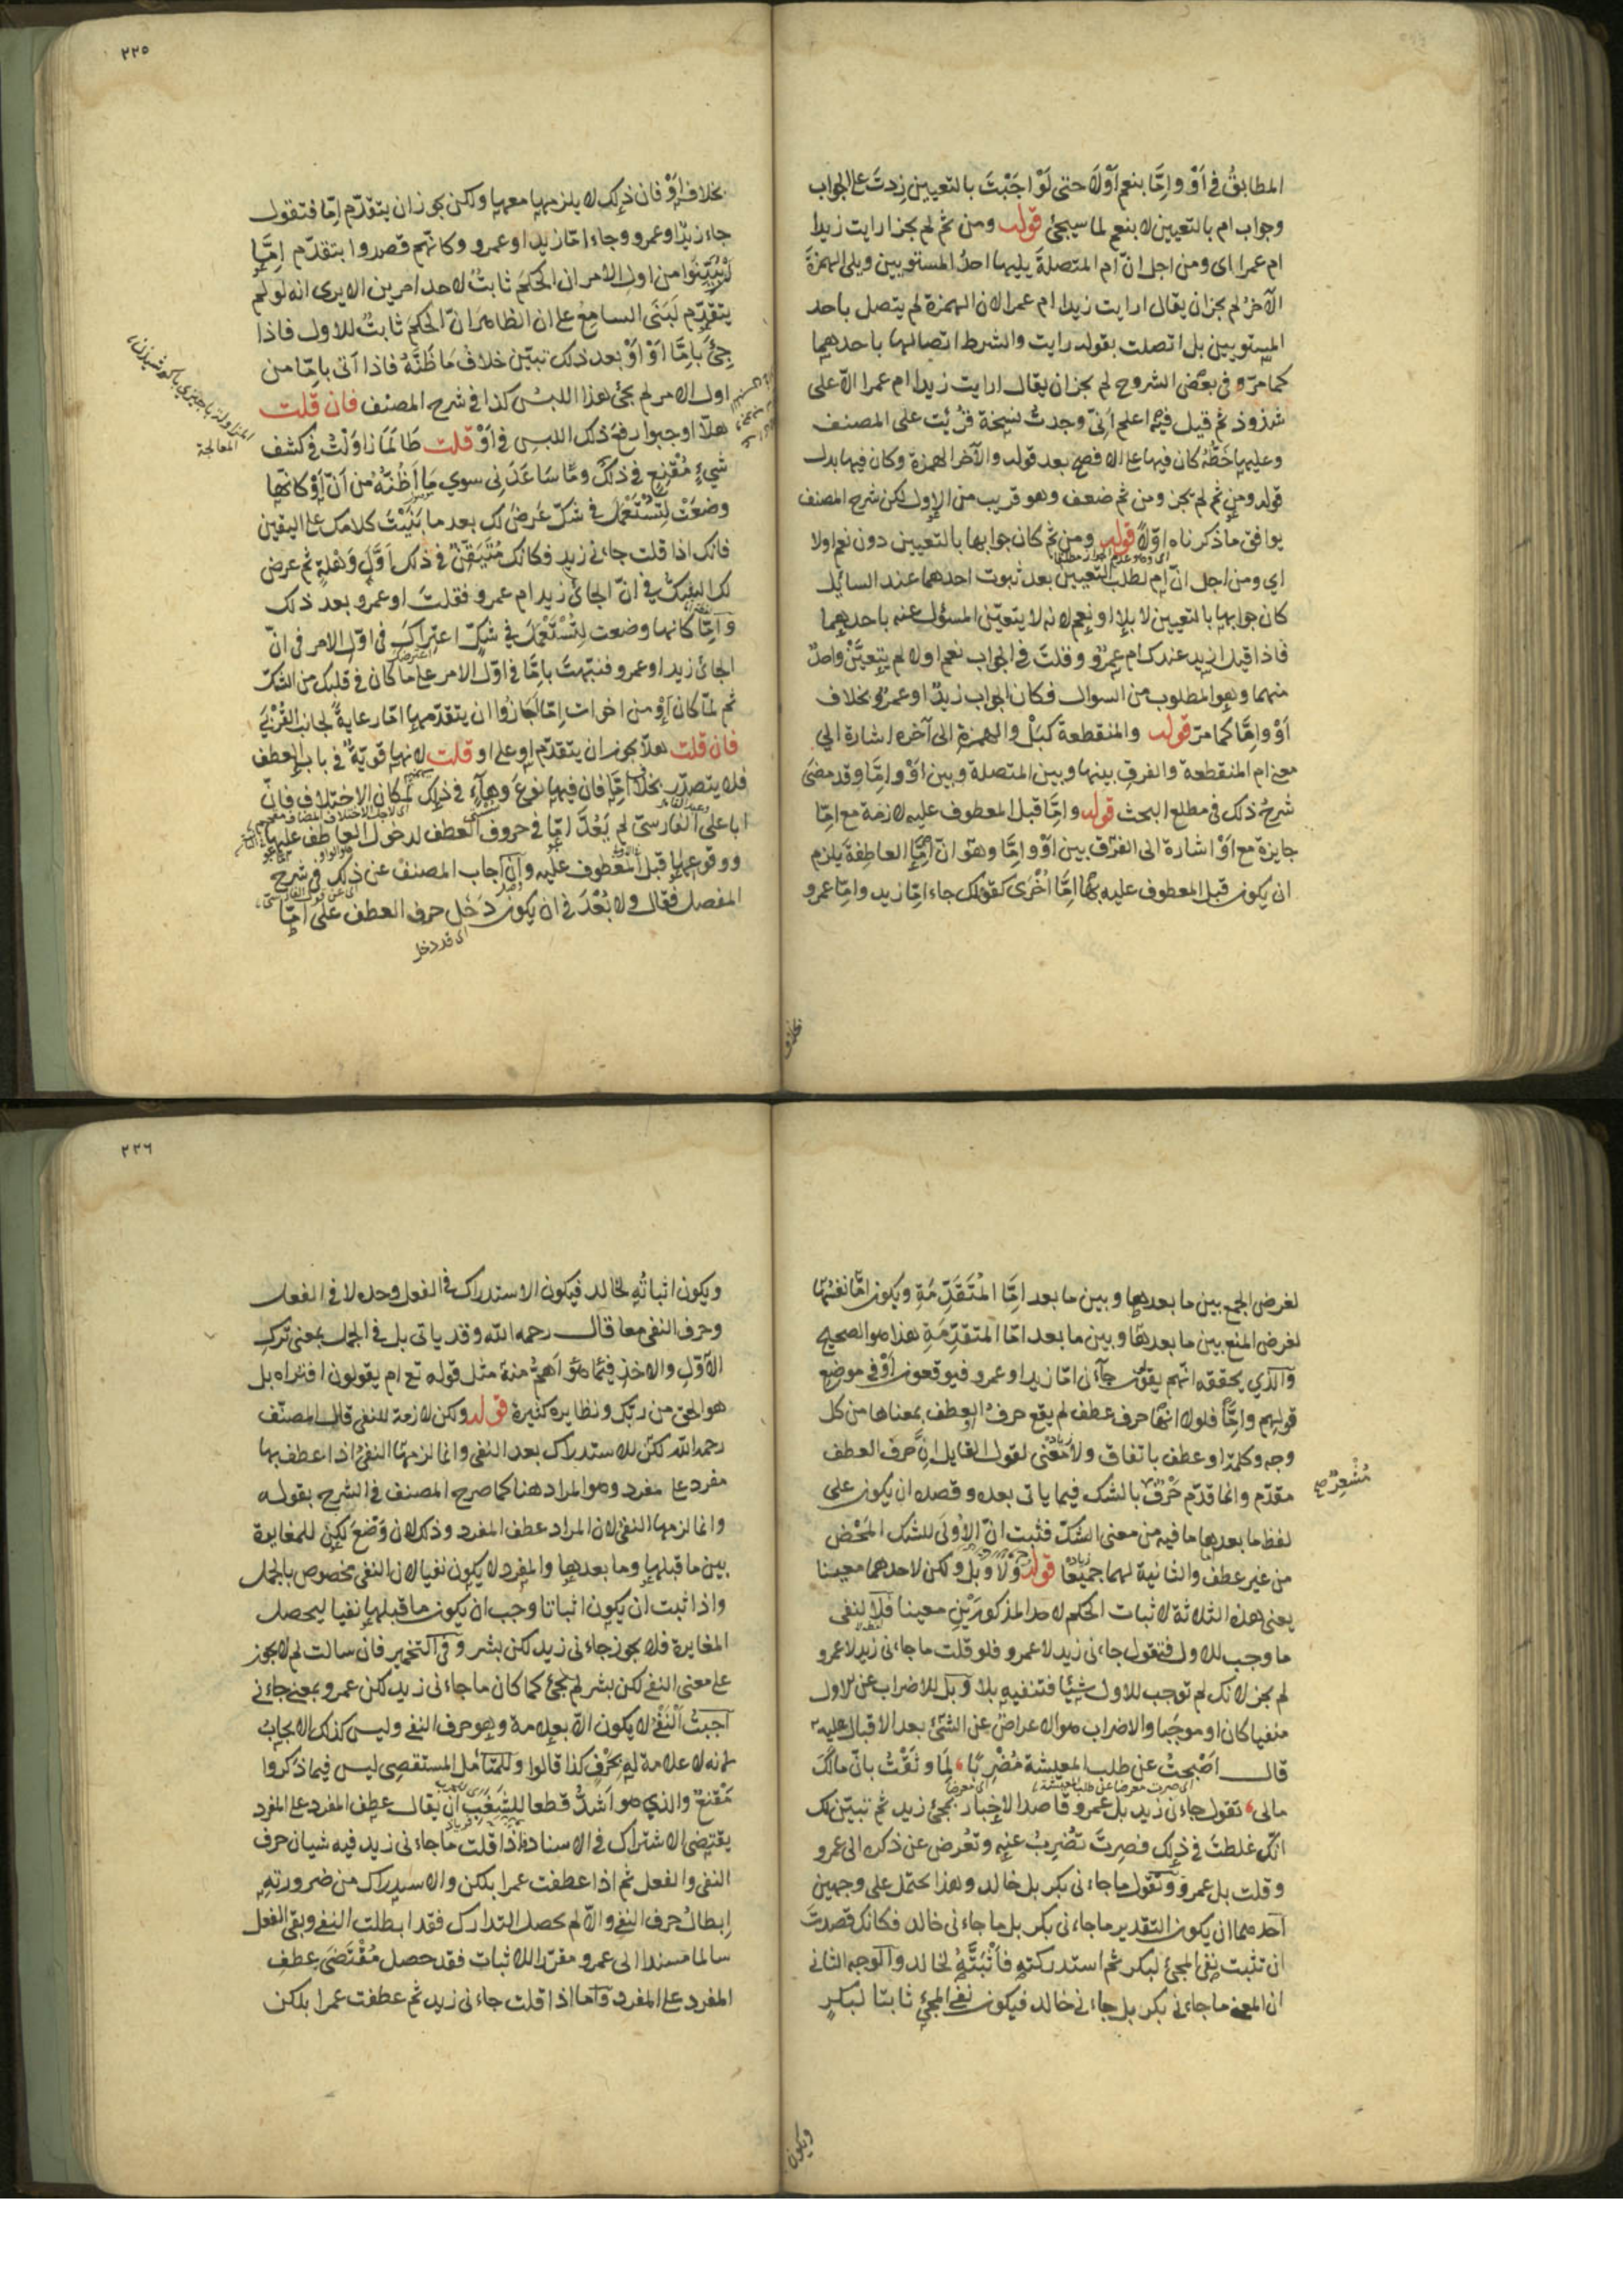 المطابق في أَوْ وإمَّا بنعم أَوْلَا حتى لَوْ اجَبْتَ بالتعيين زدتَ على الجواب
وجواب ام بالتعيين لا بنعم لما سيجئ قوله ومن ثم لم يجز ارايت زيدا
ام عمرا اى ومن اجل انّ ام المتصلةَ يليها احدُ المستويين ويلى الهمزةَ
الآخرُ لم يجز ان يقال ارايت زيدا ام عمرا لان الهمزة لم يتصل باحد
المستويين بل اتصلت بقوله رايت والشرط اتصالها باحدهما
كما مرّ وفى بعض الشروح لم يجز ان يقال ارايت زيدا ام عمرا الّا على
شذوذ ثم قيل فيه اعلم اَنِّى وجدتُ نسخة قُرِئت على المصنف
وعليها خَطُّهُ كان فيها على الافصح بعد قوله والآخر الهمزة وكان فيها بدل
قوله ومن ثم لم يجز ومن ثم ضعف وهو قريب من الاول لكن شرح المصنف
يوافق ما ذكرناه اوّلًا قوله ومن ثم كان جوابها بالتعيين دون نعم او لا
اى ومن اجل انّ ام لطلب التعيين بعد ثبوت احدهما عند السائل
كان جوابها بالتعيين لا بلا او نعم لانه لا يتعيّن المسئول عنه باحدهما
فاذا قيل ازيد عندك ام عمرو وقلتَ فى الجواب نعم او لا لم يتعيَّنْ واحدٌ
منهما وهو المطلوب من السوال فكان الجواب زيدٌ او عمرٌو بخلاف
اَوْ وإمَّا كما مرّ قوله والمنقطعة كبَلْ والهمزةِ الى آخره اشارة الى
معنى ام المنقطعة والفرقِ بينها وبين المتصلة وبين اَوْ وإمَّا وقد مضىَ
شرحُ ذلك فى مطلع البحث قوله وإمَّا قبل المعطوف عليه لازمة مع إمّا
جايزة مع اَوْ اشارة الى الفرْق بين اَوْ وإمَّا وهو انّ إمَّا العاطفةَ يلزم
ان يكون قبل المعطوف عليه بها إمَّا اُخْرَى كقولك جاء إمّا زيد وإمّا عمرو
بخلاف
٢٢٥
بخلاف أَوْ فان ذلك لا يلزمها معها ولكن يجوز ان يتقدّم إمّا فتقول
جاء زيدٌ او عمرو وجاء امّا زيد او عمرو وكانهم قصدوا بتقدّم إمَّا
لِيُبَيِّنُوا من اول الامر ان الحكمَ ثابتٌ لاحد امرين الا يرى انه لو لم
يتقدّم لَبَنَى السامعُ على ان الظاهر انّ الحكمَ ثابتٌ للاول فاذا
جِئَ بإمّا أَوْ أَوْ بعد ذلك تبيّن خلافُ ما ظَنَّهُ فاذا اتى بإمّا من
اول الامر لم يجئ هذا اللبس كذا فى شرح المصنف فان قلت
هلّا اوجبوا رفعَ ذلك اللبس فى أَوْ قلت طَالَمَا زاوَلْتُ فى كشف
شيءٍ مُقْنِعٍ فى ذلك وما سَاعَدَنِى سوى ما اَظُنُّهُ من اَنّ أَوْ كانّها
وضعَتْ لِتُسْتَعْمَلَ فى شكّ عَرَضَ لك بعد ما بَنَيْتَ كلامك على اليقين
فانك اذا قلت جاءنى زيد فكانك مُتَيَقِّنٌ فى ذلك اَوَّلَ وَهْلَةٍ ثم عرض
لك الشكّ فى انّ الجائى زيد ام عمرو فقلتَ او عمرو بعد ذلك
وإمّا كانها وضعت لِتُسْتَعْمَلَ فى شكّ اعتراك فى اوّل الامر فى انّ
الجائى زيد او عمرو فنبّهتَ بإمّا فى اوّل الامر على ما كان فى قلبك من الشكّ
ثم لمّا كان أَوْ من اخوات إمّا اَجَازُوا ان يتقدّمها امّا رعايةً لجانب القُرْبَى
فان قلت هلّا يجوز ان يتقدّم او على او قلت لانها قويّةٌ فى باب العطف
فلا يتصدّر بخلاف إمّا فان فيها نوعَ وهاءٍ فى ذلك لمكان الاختلاف فانّ
ابا على الفارسىّ لم يَعُدَّ إمّا فى حروف العطف لدخول العاطف عليها
ووقوعها قبل المعطوف عليه وإن اجاب المصنفُ عن ذلك فى شرح
المفصل فقال ولا بُعْدَ فى ان يكون دَخَل حرف العطف على إمّا
اى قد دخل
المعالجة
لغرض الجمع بين ما بعدها وبين ما بعد إمَّا المُتَقَدِّمَةِ ويكون امّا نفسُها
لغرض المنع بين ما بعدها وبين ما بعد امّا المتقدّمةِ هذا هو الصحيح
والذى يحققه انهم يقولون جاءنى امّا زيد او عمرو فيوقعون أَوْ فى موضع
قولهم وإمَّا فلولا انها حرف عطف لم يقع حرفُ العطف بمعناها من كل
وجه وكلمةُ او عطف باتفاق ولا معنى لقول القايل انَّ حرف العطف
مقدّم وانما قدّم حَرْفٌ بالشك فيما ياتى بعده وقصده ان يكون على
مُشْعِرٌ صح
لفظ ما بعدها ما فيه من معنى الشكّ فثبت انّ الأولَى للشك المَحْض
من غير عطف والثانية لهما جميعًا قوله ولا وبل ولكن لاحدهما معينا
يعنى هذه الثلاثة لاثبات الحكم لاحد المذكورَيْنِ معينا فلا لنفى
ما وجب للاول فتقول جاءنى زيد لا عمرو فلو قلت ما جاءنى زيد لا عمرو
لم يجز لانك لم توجب للاول شيئا فتنفيه بلا وبل للاضراب عن الاول
منفيا كان او موجَبا والاضراب هو الاعراض عن الشئ بعد الاقبال عليه
قال اَصْبحتُ عن طلب المعيشة مُضْرِبًا لِمَا وثَقْتُ بانّ مالَكَ
مالى تقول جاءنى زيد بل عمرو قاصدا الاخبار بمجئ زيد ثم تبيّن لك
انك غلطتَ فى ذلك فصِرتَ تُضرِبُ عنه وتُعرض عن ذكره الى عمرو
وقلت بل عمرو وتقول ما جاءنى بكر بل خالد وهذا يحتمل على وجهين
احدهما ان يكون التقدير ما جاءنى بكر بل ما جاءنى خالد فكانك قصدتَ
ان تثبت نفى المجئ لبكر ثم استدركته فاَثْبَتَّهُ لخالد والوجه الثانى
ان المعنى ما جاءنى بكر بل جاءنى خالد فيكون نفى المجئ ثابتا لبكرٍ
ويكون
٢٢٦
ويكون اثباتُه لخالد فيكون الاستدراك فى الفعل وحده لا فى الفعل
وحرف النفى معا قال رحمه الله وقد ياتى بل فى الجمل بمعنى تركِ
الاوّلِ والاخذِ فيما هو اَهمُّ منه مثل قوله تع ام يقولون افتراه بل
هو الحق من ربّك ونظايره كثيرة قوله ولكن لازمة للنفى قال المصنّف
رحمه الله لكنّ للاستدراك بعد النفى وانما لزمها النفىُ اذا عطف بها
مفرد على مفرد وهو المراد هنا كما صرح المصنف فى الشرح بقوله
وانما لزمها النفى لان المراد عطف المفرد وذلك لان وَضْعَ لكِنْ للمغايرة
بين ما قبلها وما بعدها والمفرد لا يكون نفيا لان النفى مخصوص بالجمل
واذا ثبت ان يكون اثباتا وجب ان يكون ما قبلها نفيا ليحصل
المغايرة فلا يجوز جاءنى زيد لكن بشر وفى التخمير فان سالت لم لا يجوز
على معنى النفى لكن بشر لم يجئ كما كان ما جاءنى زيد لكن عمرو بمعنى جاءنى
اجبتُ النفىُ لا يكون الّا بعلامة وهو حرف النفى وليس كذلك الايجابُ
لانه لا علامة له بحَرْفٍ كذا قالوا وللمتأمل المستقصى ليس فيما ذكروا
مَقْنَعٌ والذى هو اَشدُّ قطعا للشَغَبِ ان يقال عطف المفرد على المفرد
يقتضى الاشتراك فى الاسناد فاذا قلت ما جاءنى زيد فيه شيان حرف
النفى والفعل ثم اذا عطفت عمرا بلكن والاستدراك من ضرورته
اِبطالُ حرف النفى والّا لم يحصل التدارك فقد ابطلت النفى وبقى الفعل
سالما مسندا الى عمرو مقررا للاثبات فقد حصل مُقْتَضَى عطفِ
المفرد على المفرد واما اذا قلت جاءنى زيد ثم عطفت عمرا بلكن